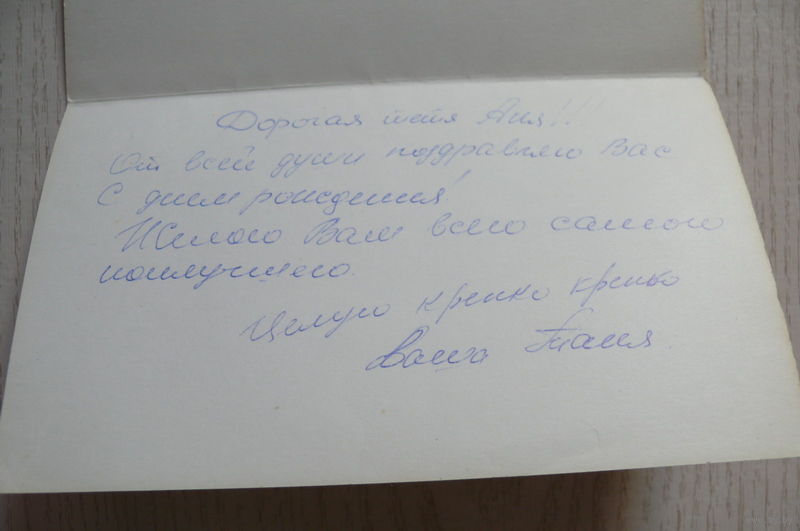 Дорогая тетя Аня!!!
От всей души поздравляю Вас
С днем рождения!
Желаю Вам всего самого
наилучшего.
Целую крепко крепко
Ваша Таня.